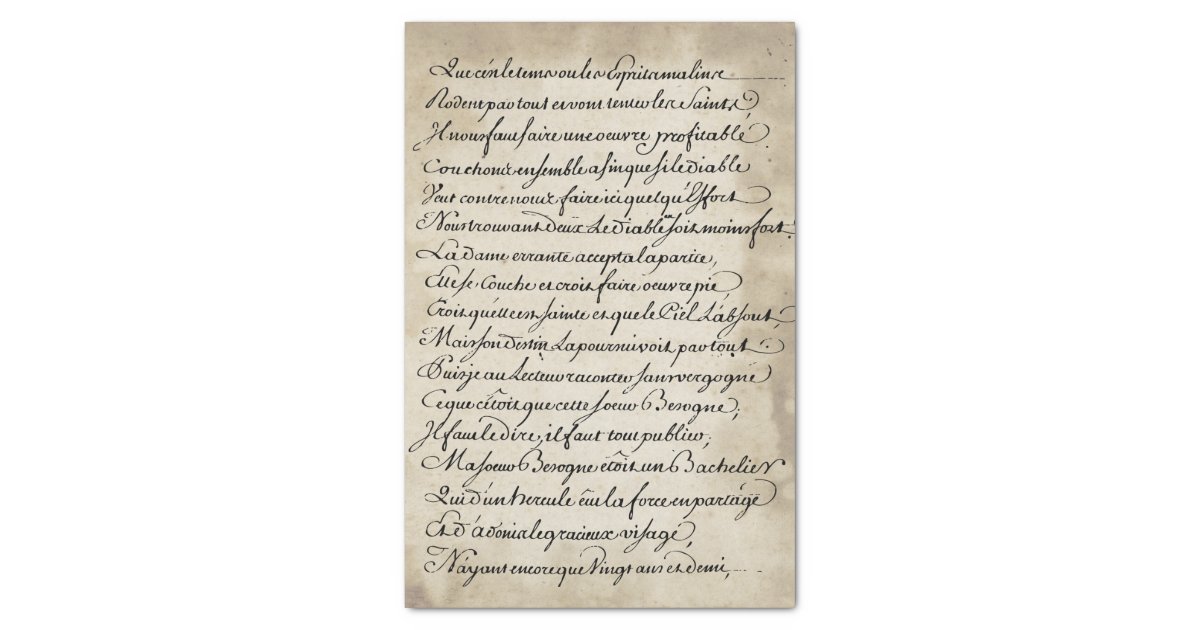 Que c'est le tems ou les Esprits malins
Rodent par tout et vont tenter les Saints;
Il nous faut faire une oeuvre profitable.
Couchons ensemble afin que si le diable
Veut contre nous faire ici quelqu'Effort
Nous trouvant deux Le diable en soit moins fort.
La dame errante accepta la partie,
Elle se Couche et croit faire oeuvre pie,
Croit qu'elle est sainte et que le Ciel L'absout,
Mais son destin La poursuivoit par tout.
Puis je au Lecteur raconter sans vergogne
Ce que c'étoit que cette soeur Besogne;
Il faut le dire, il faut tout publier;
Ma soeur Besogne étoit un Bachelier
Qui d'un hercule eut la force en partage
Et d'adonis le gracieux visage,
N'ayant encore que Vingt ans et demi,